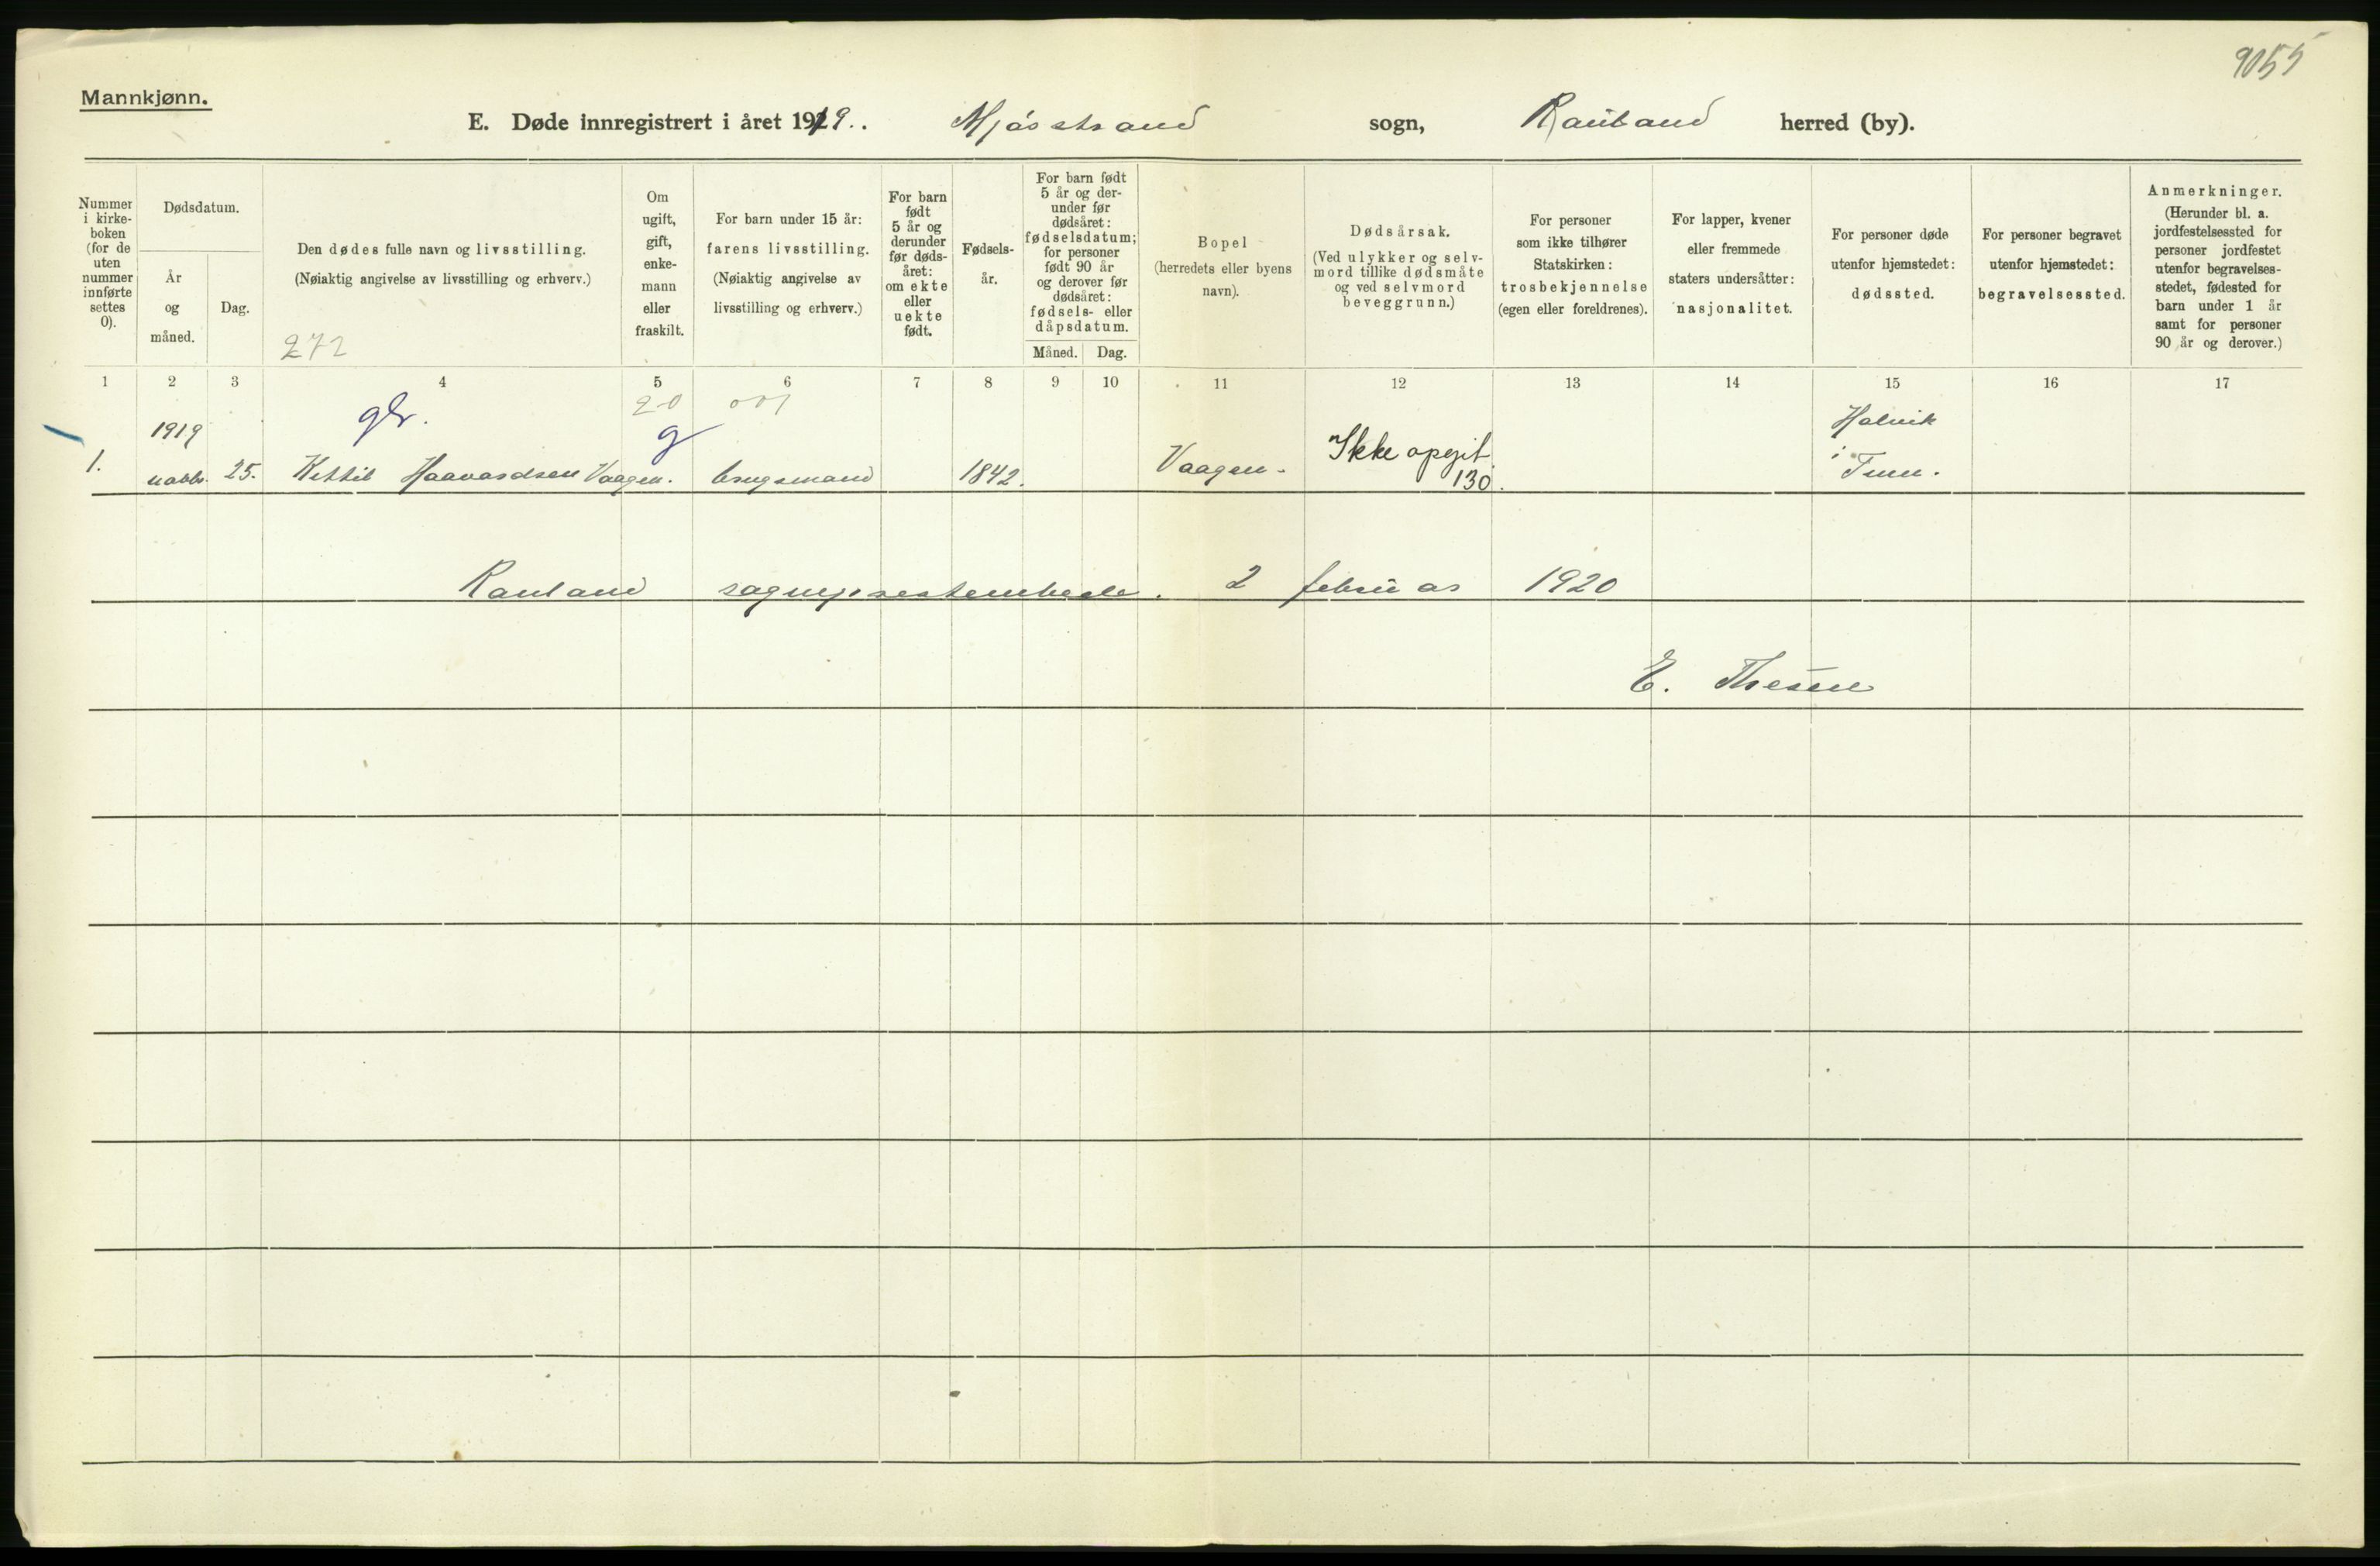 9055
Mannkjønn.
E. Døde innregistrert i året 1919. Mjösstrand sogn, Rauland herred (by).
Nummer i kirke-boken (for de uten nummer innførte settes 0).
Dødsdatum.
År og måned.
Dag.
Den dødes fulle navn og livsstilling.
(Nøiaktig angivelse av livsstilling og erhverv.)
272
Om ugift, gift, enke-mann eller fraskilt.
For barn under 15 år: farens livsstilling.
(Nøiaktig angivelse av livsstilling og erhverv.)
For barn født 5 år og derunder før døds-året: om ekte eller uekte født.
Fødsels-år.
For barn født 5 år og der-under før dødsåret: fødselsdatum; for personer født 90 år og derover før dødsåret: fødsels- eller dåpsdatum.
Måned. Dag.
Bopel
(herredets eller byens navn).
Dødsårsak.
(Ved ulykker og selv-mord tillike dødsmåte og ved selvmord beveggrunn.)
For personer som ikke tilhører Statskirken: trosbekjennelse (egen eller foreldrenes).
For lapper, kvener eller fremmede staters undersåtter: nasjonalitet.
For personer døde utenfor hjemstedet: dødssted.
For personer begravet utenfor hjemstedet: begravelsessted.
Anmerkninger.
(Herunder bl. a. jordfestelsessted for personer jordfestet utenfor begravelses-stedet, fødested for barn under 1 år samt for personer 90 år og derover.)
1 2 3 4 5 6 7 8 9 10 11 12 13 14 15 16 17
20 001
1919 g Ikke opgit Halvik
1. novbr. 25. Kittil Haavardsen Vaagen. brugsmand 1842. Vaagen. 130. i Tinn.
Rauland sogneprestembede. 2 februar 1920
E. Thesen